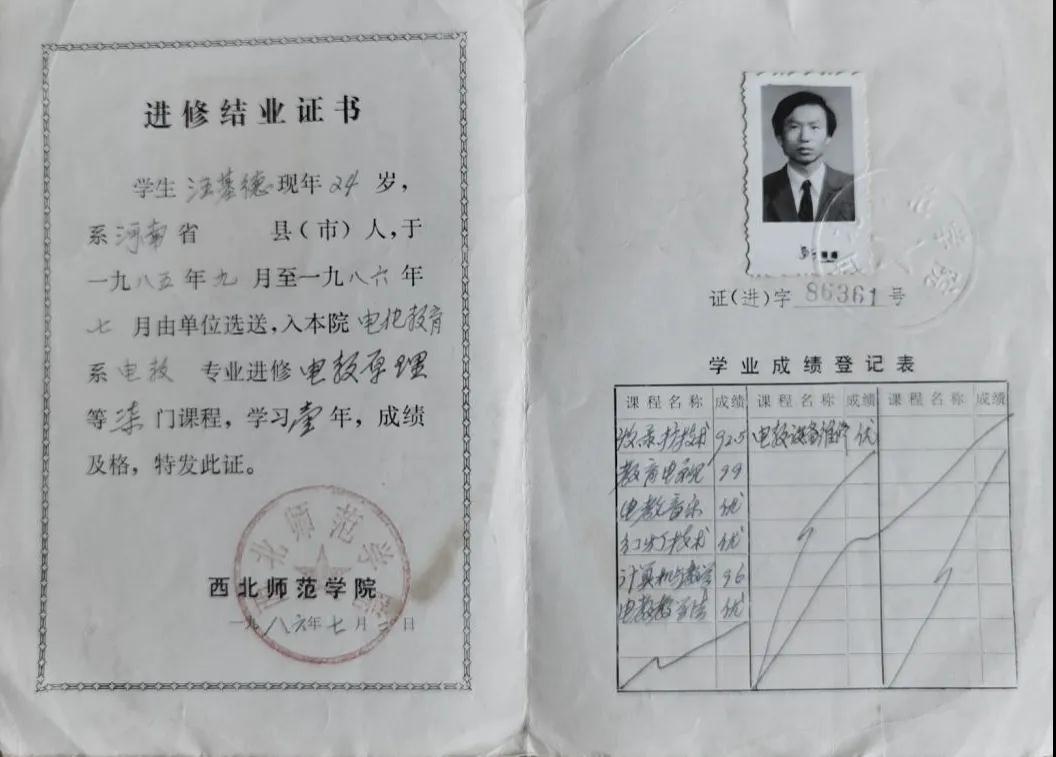 进修结业证书
学生 汪基德 现年 24 岁，
系 河南 省 县（市）人，于
一九八五年九月至一九八六年
七 月由单位选送，入本院 电化教育
系 电教 专业进修 电教原理
等 柒 门课程，学习 壹 年，成绩
及格，特发此证。
西北师范学院
西北师范学院
一九八六年七月二日
证（进）字 86361 号
学业成绩登记表
课程名称 成绩 课程名称 成绩 课程名称 成绩
92.5 电教设备维修 优
教育电视 99
电教音乐 优
幻灯技术 优
计算机与教学 96
电教教学法 优